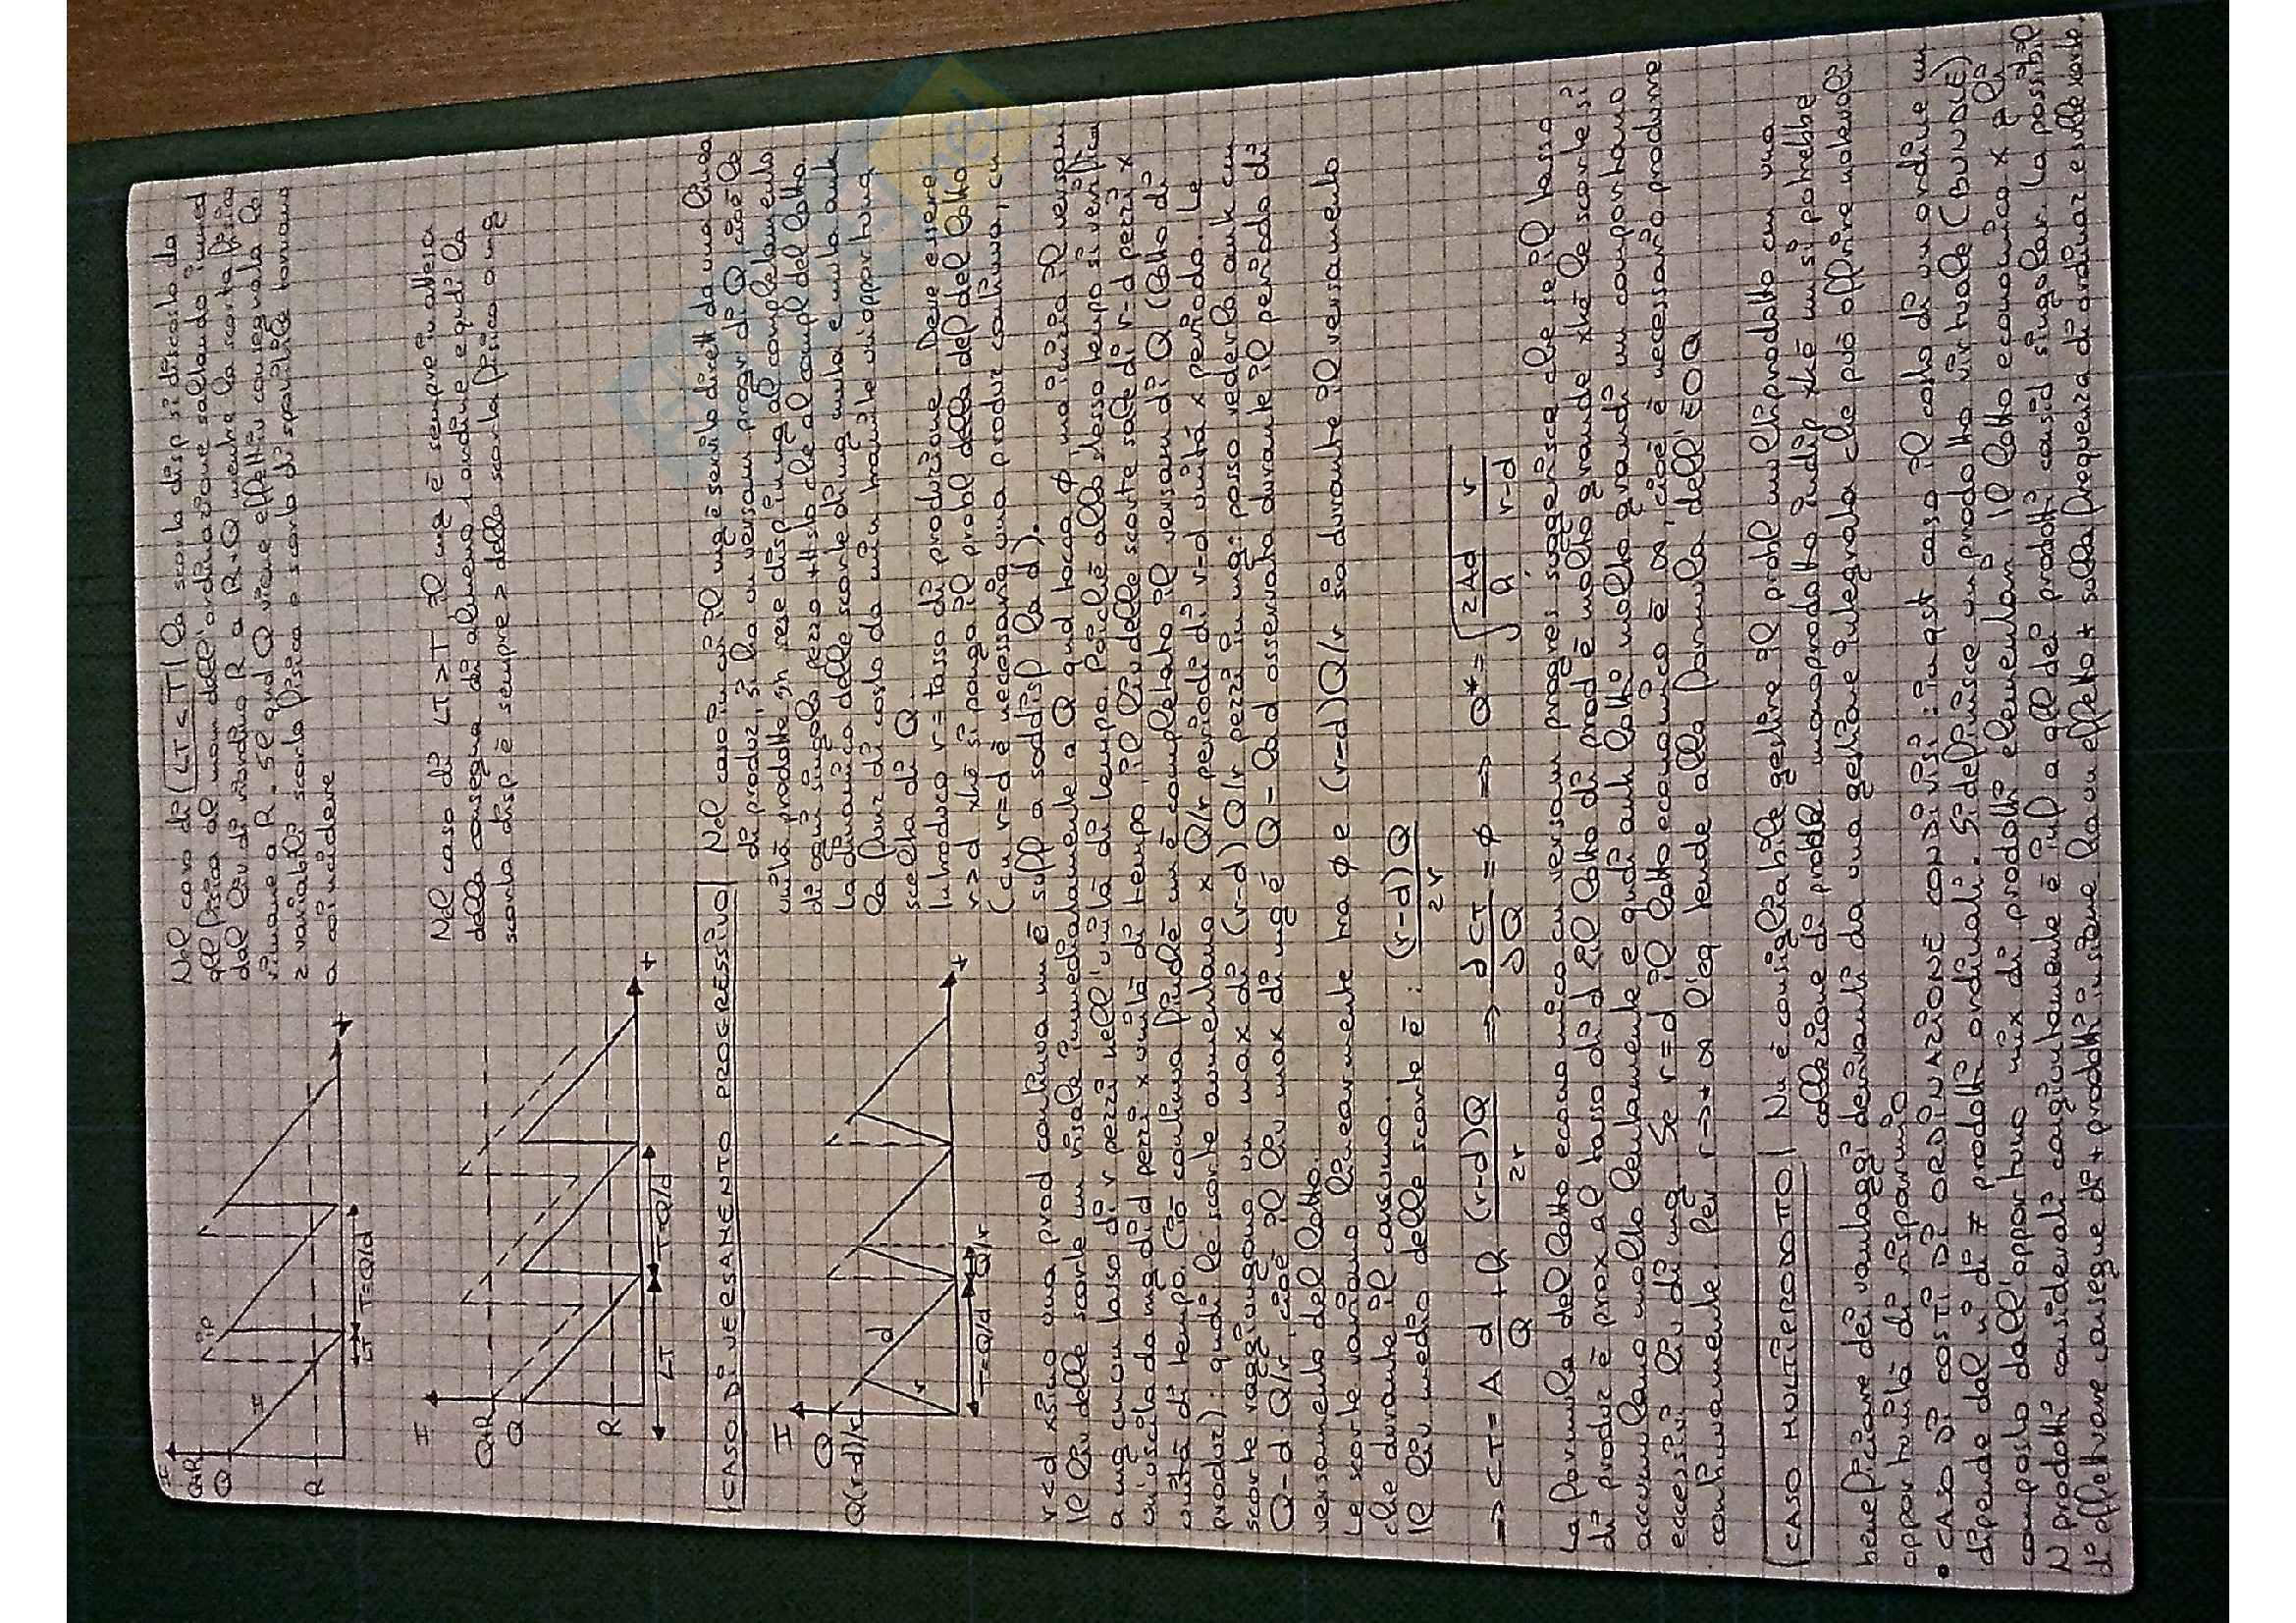 Nel caso di LT<T la scorta disp si discosta da
quella fisica al mom dell'ordinazione saltando immed
dal liv di riordino R a R+Q mentre la scorta fisica
rimane a R. Se qnd Q viene effettiv consegnata le
2 variabili scorta fisica e scorta disponibile tornano
a coincidere
I
Q+R
Q
R
ip
I
LT
T=Q/d
t
Nel caso di LT>T il mg è sempre in attesa
della consegna di almeno 1 ordine e quindi la
scorta disp è sempre > della scorta fisica a mg
I
Q+R
Q
R
LT
T=Q/d
t
CASO DI VERSAMENTO PROGRESSIVO Nel caso in cui il mg è servito dirett da una linea
di produz, si ha un versam progr di Q cioè le
unità prodotte sn rese disp in mg al completamento
di ogni singolo pezzo + tosto che al compl del lotto.
La dinamica delle scorte di mg muta e muta anke
la funz di costo da min tramite un'opportuna
scelta di Q.
Introduco r = tasso di produzione. Deve essere
r>d xkè si ponga il probl della def del lotto
(cn r=d è necessaria una produz continua, cn
I
Q
Q(r-d)/r
r
d
T=Q/d
Q/r
t
r<d xsino una prod continua nn è suff a soddisf la d).
Il liv delle scorte nn risale immediatamente a Q qnd tocca ø, ma inizia il versam
a mg cn un tasso di r pezzi nell'unità di tempo. Poichè allo stesso tempo si verifica
un'uscita da mg di d pezzi x unità di tempo, il liv delle scorte sale di r-d pezzi x
unità di tempo. Ciò continua finchè nn è completato il versam di Q (lotto di
produz): quindi le scorte aumentano x Q/r periodi di r-d unità x periodo. Le
scorte raggiungono un max di (r-d)Q/r pezzi in mg: posso vederla anke cn
Q-d Q/r, cioè il liv max di mg è Q - la d osservata durante il periodo di
versamento del lotto.
Le scorte variano linearmente tra ø e (r-d)Q/r sia durante il versamento
che durante il consumo.
Il liv medio delle scorte è: (r-d)Q/2r
⇒ CT = A d/Q + h (r-d)Q/2r ⇒ ∂CT/∂Q = ø ⇒ Q* = √(2Ad/h · r/(r-d))
La formula del lotto economico cn versam progres suggerisce che se il tasso
di produz è prox al tasso di d il lotto di prod è molto grande xkè le scorte si
accumulano molto lentamente e quindi anke lotti molto grandi nn comportano
eccessivi liv di mg. Se r=d il lotto economico è ∞, cioè è necessario produrre
continuamente. Per r→+∞ l'eq tende alla formula dell'EOQ
CASO MULTIPRODOTTO Nn è consigliabile gestire il probl multiprodotto cn una
collezione di probl monoprodotto indip xkè nn si potrebbe
beneficiare dei vantaggi derivanti da una gestione integrata che può offrire notevoli
opportunità di risparmio.
• CASO DI COSTI DI ORDINAZIONE CONDIVISI: in qst caso il costo di un ordine nn
dipende dal n° di ≠ prodotti ordinati. Si definisce un prodotto virtuale (BUNDLE)
composto dall'opportuno mix di prodotti elementari. Il lotto economico x gli
N prodotti considerati congiuntamente è inf a qll dei prodotti consid singolar. La possibil
di effettuare consegne di + prodotti insieme ha un effetto + sulla frequenza di ordinaz e sulle varie